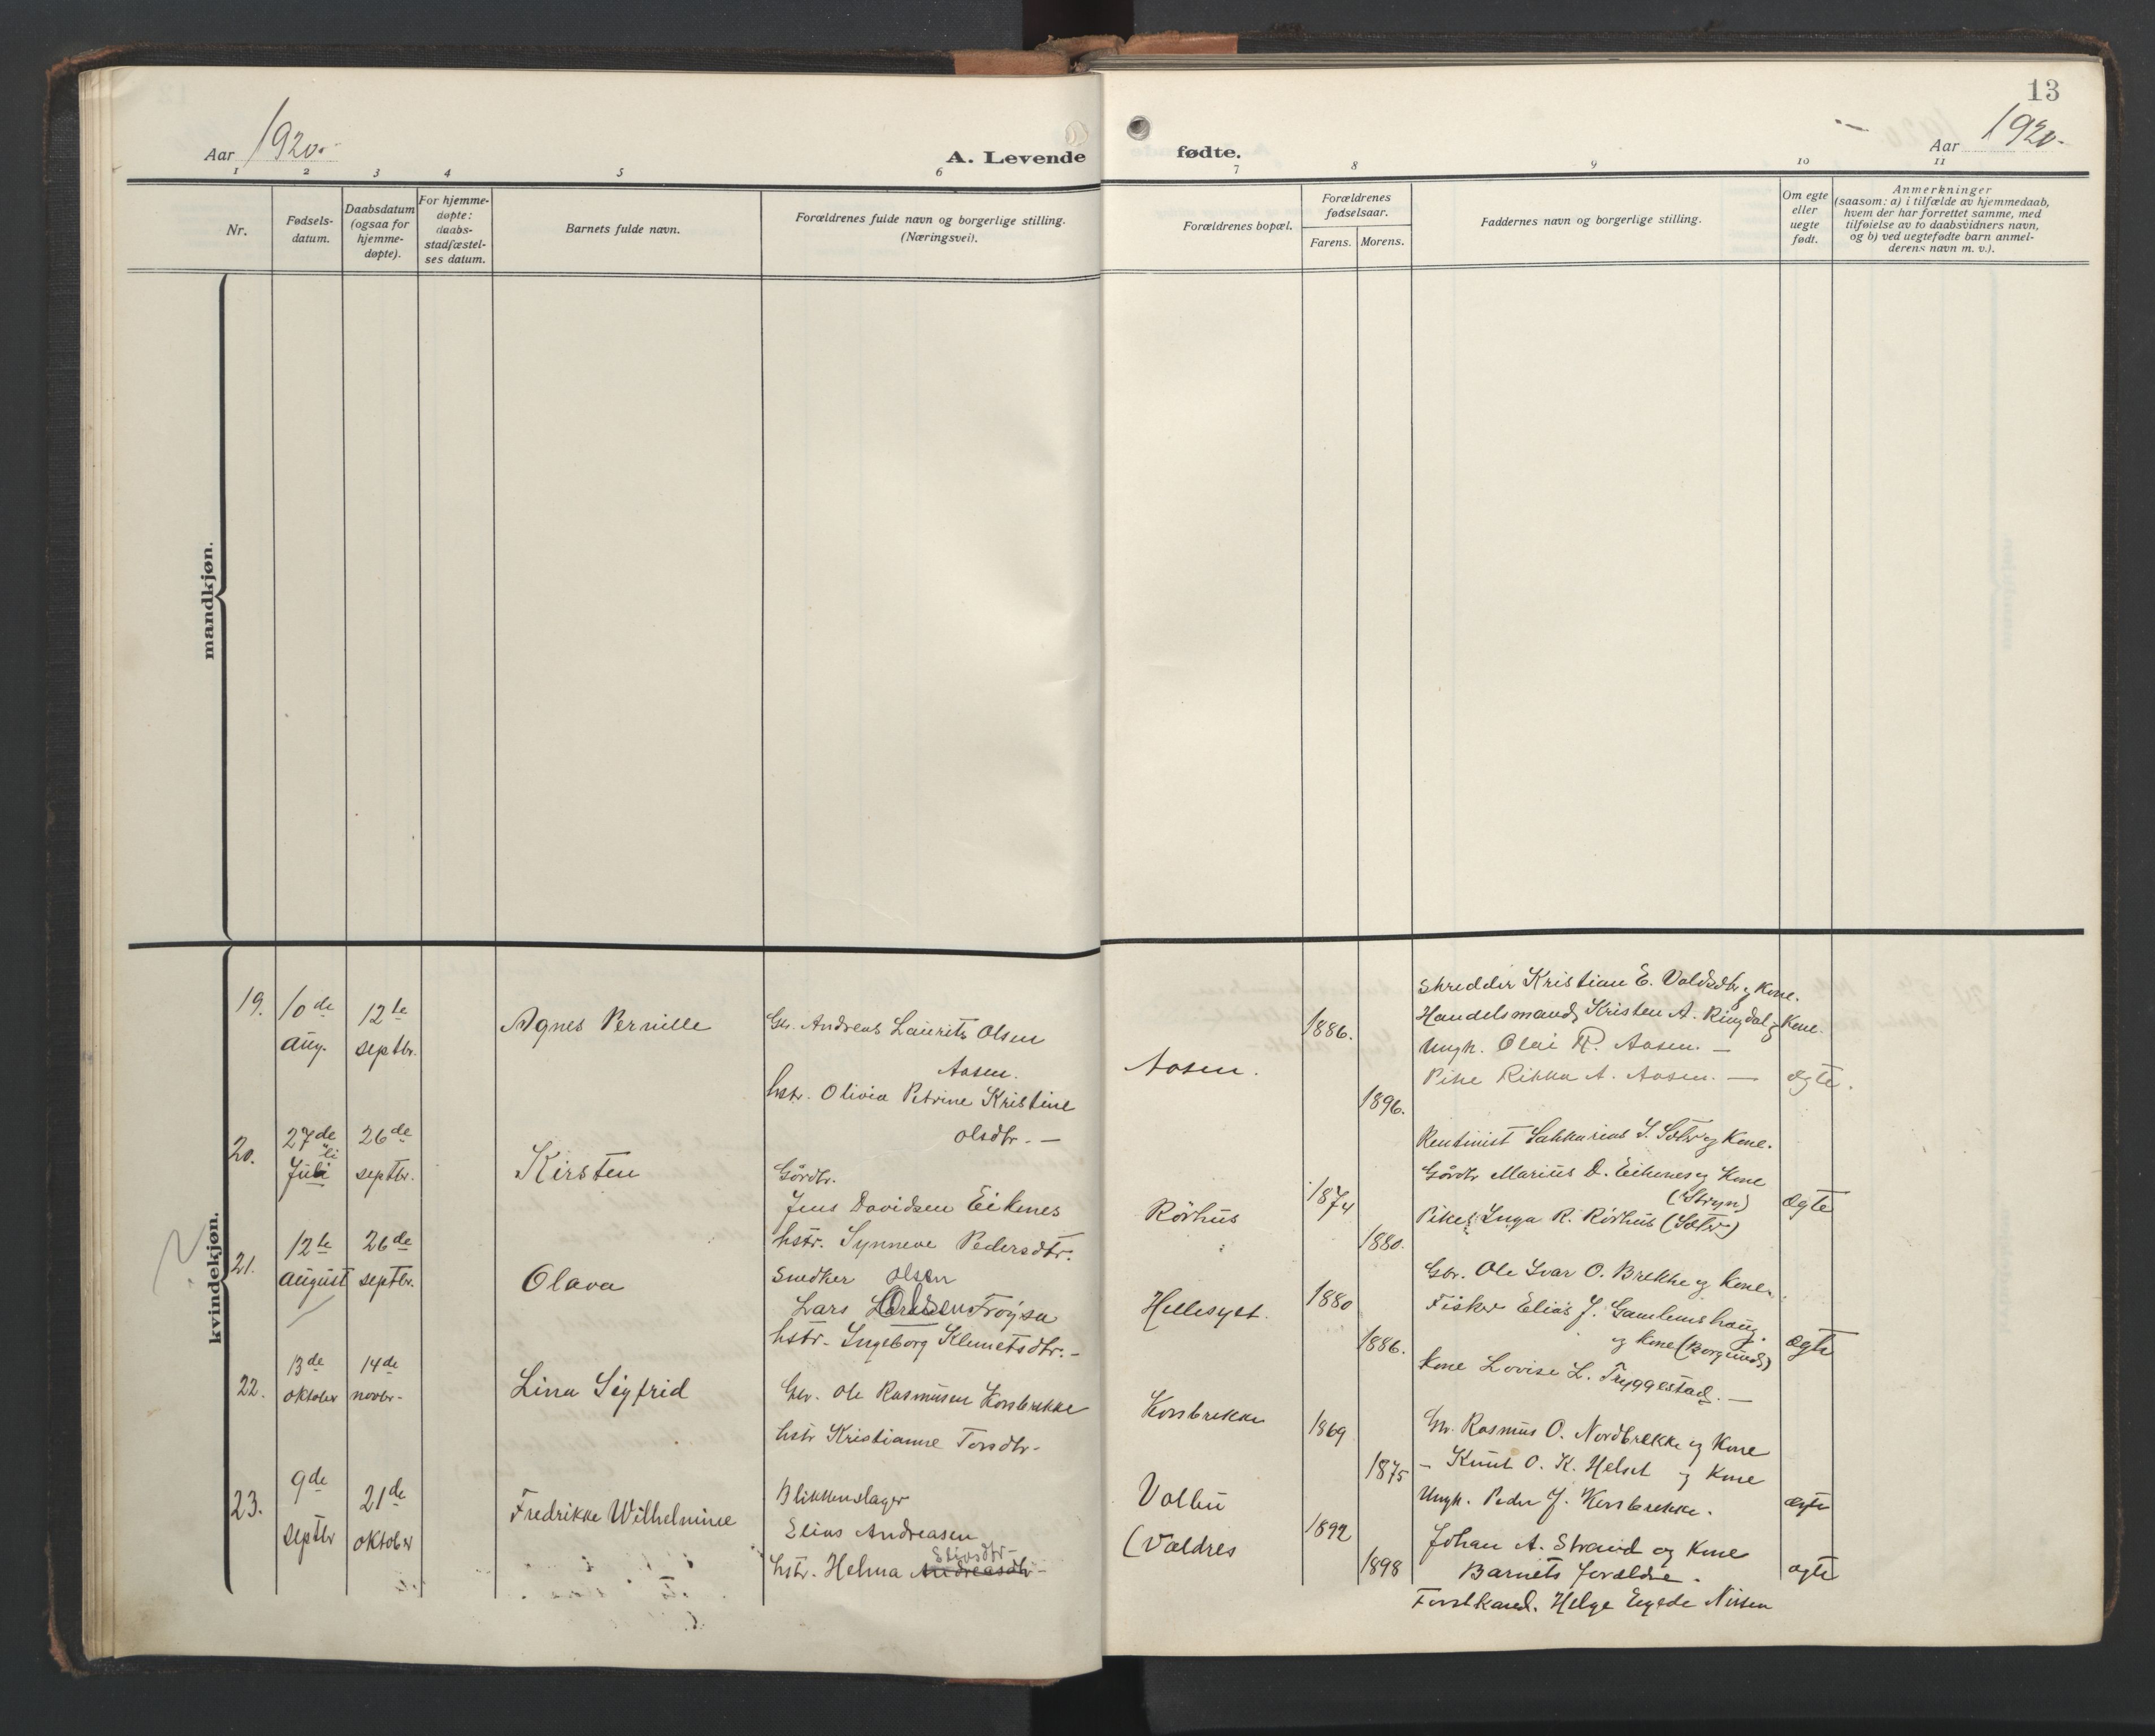 13
Aar 1920.
A. Levende
fødte.
Aar 1920.
1 2 3 4 5 6 7 8 9 10 11
Nr.
Fødsels-
datum.
Daabsdatum
(ogsaa for
hjemme-
døpte).
For hjemme-
døpte:
daabs-
stadfæstel-
ses datum.
Barnets fulde navn.
Forældrenes fulde navn og borgerlige stilling.
(Næringsvei).
Forældrenes bopæl.
Forældrenes
fødselsaar.
Farens. Morens.
Faddernes navn og borgerlige stilling.
Om egte
eller
uegte
født.
Anmerkninger
(saasom: a) i tilfælde av hjemmedaab,
hvem der har forrettet samme, med
tilføielse av to daabsvidners navn,
og b) ved uegtefødte barn anmel-
derens navn m. v.).
mandkjøn.
kvindekjøn.
19.
10de
aug.
12te
septbr.
Agnes Pernille
Gbr. Andreas Laurits Olsen
Aasen.
hstr. Olivia Petrine Kristine
Olsdtr. —
Aasen.
1886.
1896.
Skredder Kristian E. og Kone.
Handelsmand Kristen A. Ringdal og Kone.
Ungk. Olai P. Aasen. —
Pike Rikka A. Aasen. —
ægte.
20.
27de
Juli
li
26de
septbr.
Kirsten
Gårdbr.
Jens Davidsen Eikenes
hstr. Synneve Pedersdtr.
Rørhus
1874
1880.
Rentenist Sakkarias S. Sætre og Kone.
Gårdbr Marius D. Eikenes og Kone
(Stryn)
Pike Inga R. Rørhus (Sætre)
ægte
21.
12te
august
26de
septbr.
Olava
Snedker Olsen
Lars Olsen Frøysa
hstr. Ingeborg Klemetsdtr. —
Hellesylt.
1880
1886.
Gbr. Ole Ivar O. Brekke og Kone.
Fisker Elias J. Gamlemshaug
og Kone (Borgund)
Kone Lovise L. Tryggestad. —
ægte
22.
13de
oktober
14de
novbr.
Lina Sigfrid
Gbr. Ole Rasmusen Korsbrekke
hstr Kristianne Torsdtr.
Korsbrekke
1869
1875
Gbr. Rasmus O. Nordbrekke og Kone
— Knut O. K. Helset og Kone
Ungk. Peder J. Korsbrekke.
ægte
23.
9de
septbr
21de
oktober
Fredrikke Wilhelmine
Blikkenslager
Elias Andreasen
Stivsdtr —
hstr. Helma Andreasdtr
Volbu
(Valdres
1892
1898
Johan A. Strand og Kone
Barnets forældre.
Forstkand. Helge Engede Nissen
ægte